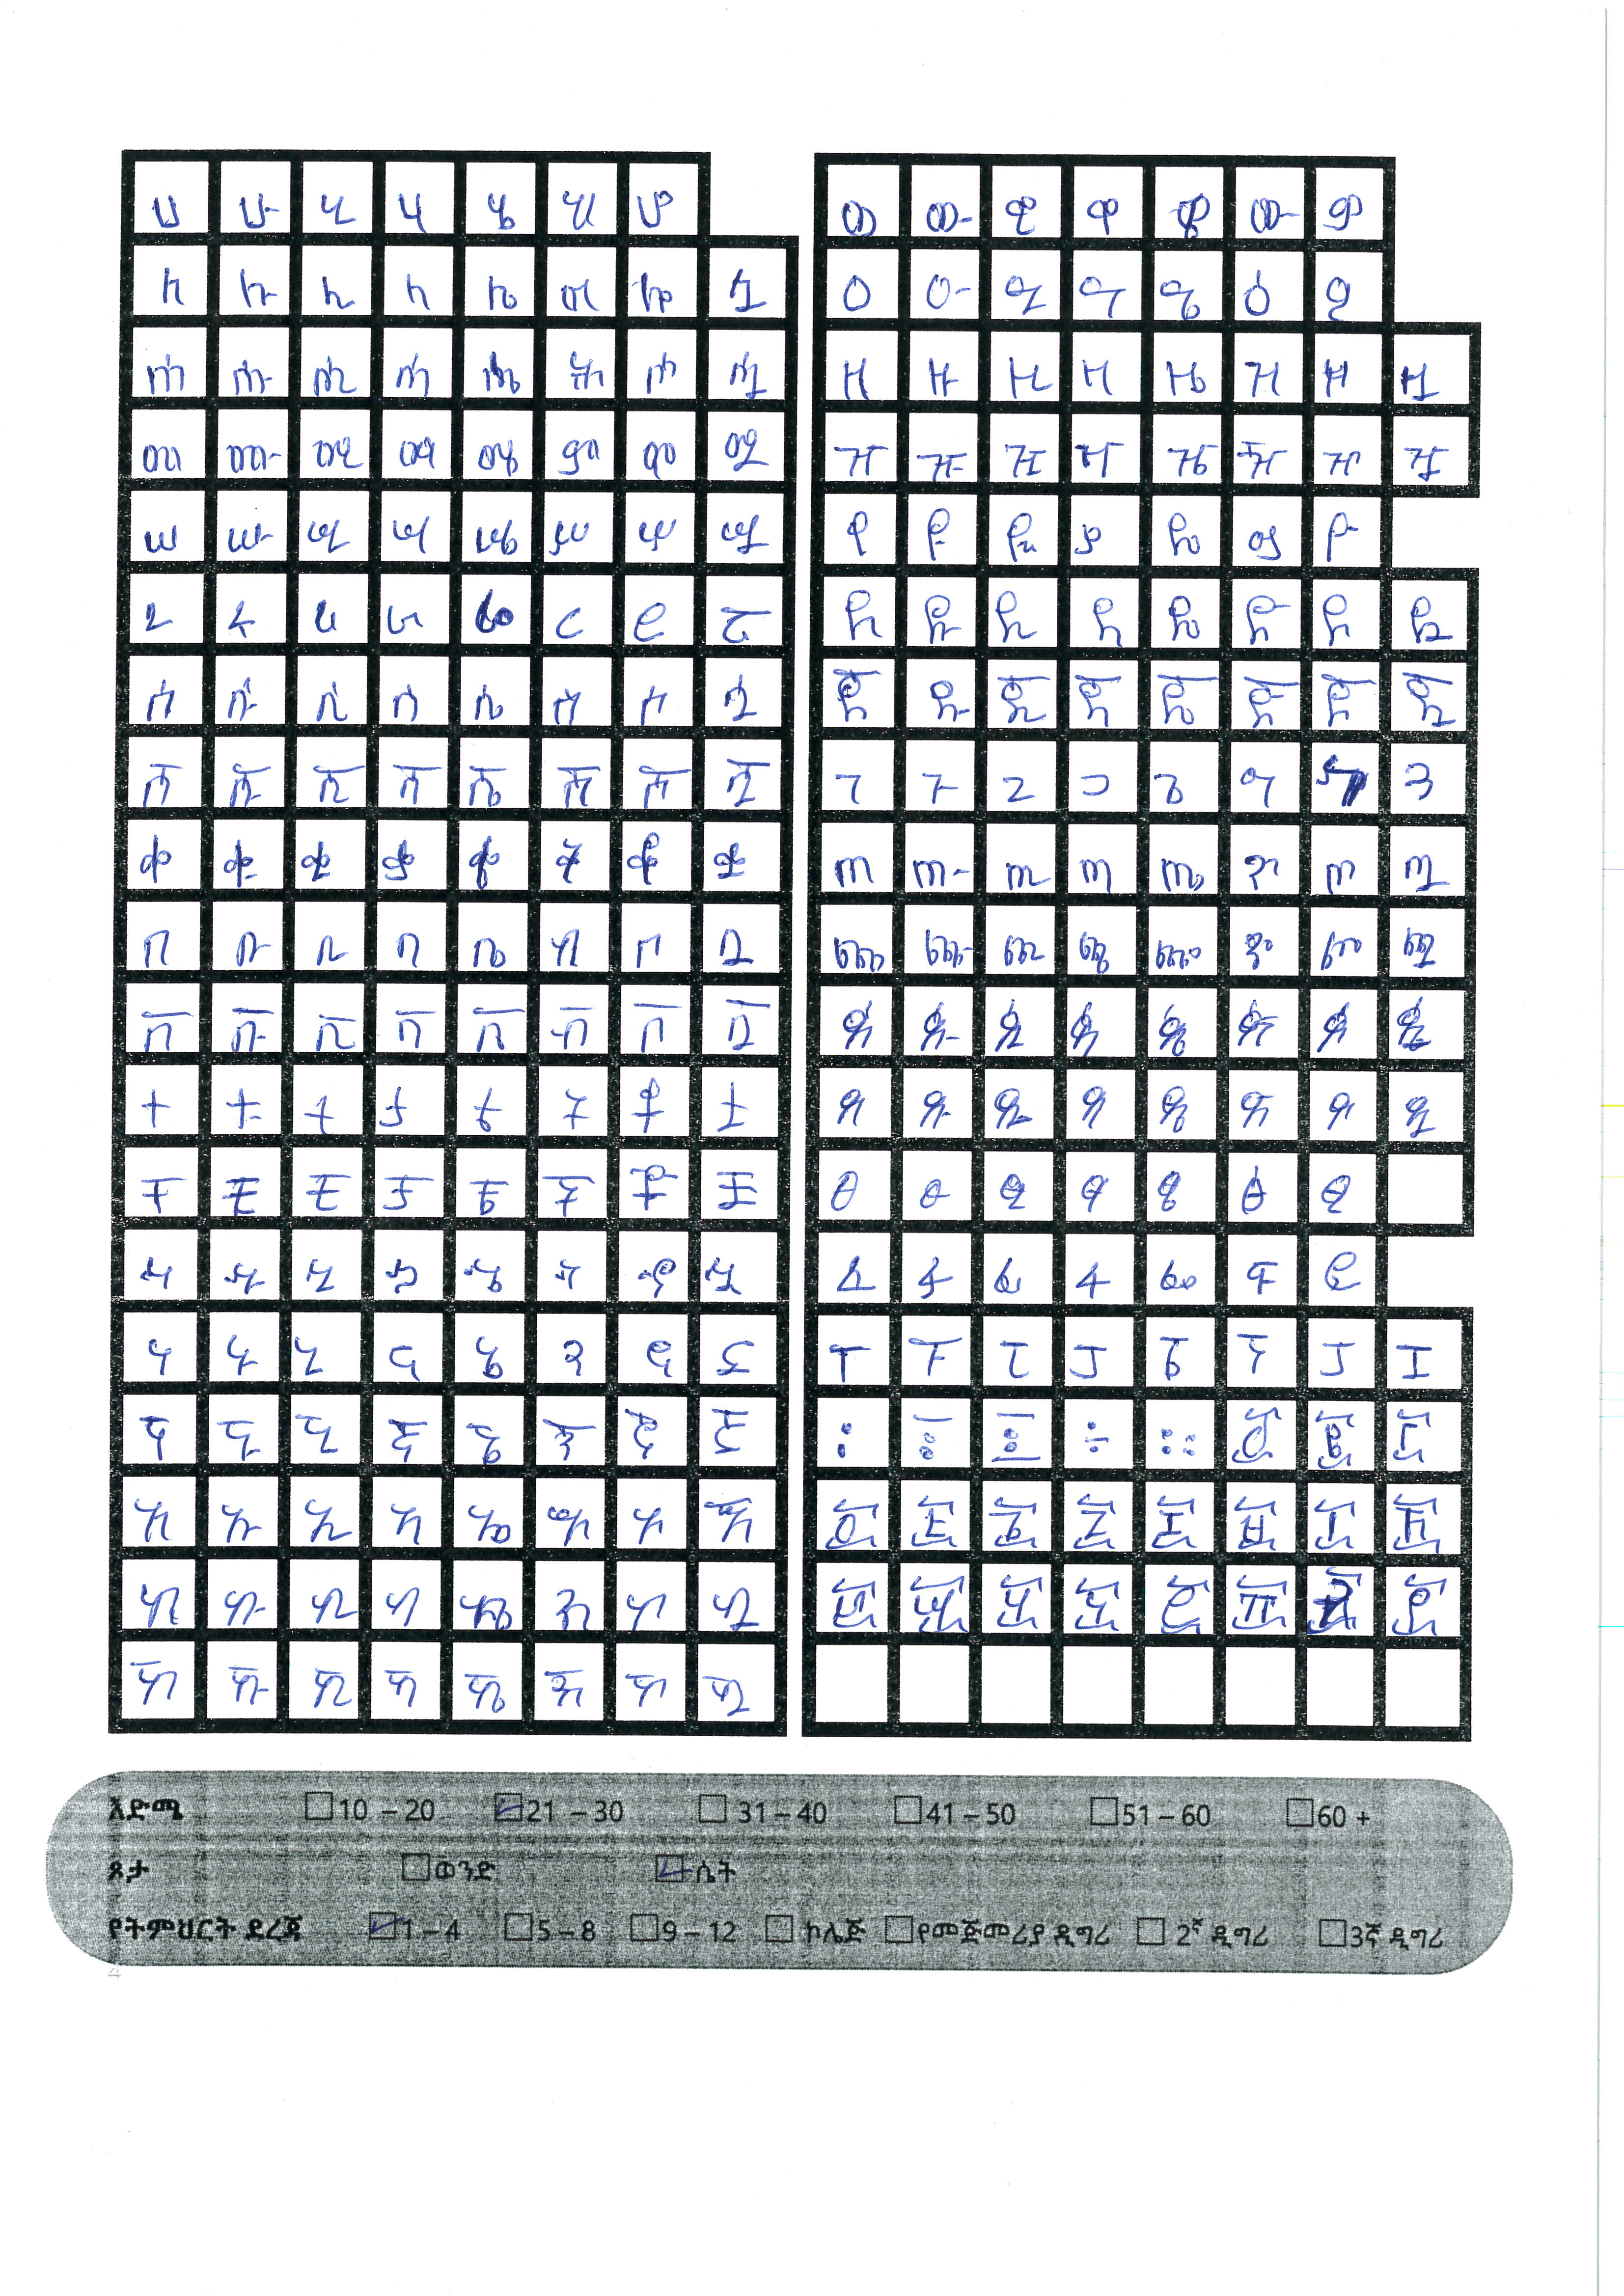 ሀ ሁ ሂ ሃ ሄ ህ ሆ
ለ ሉ ሊ ላ ሌ ል ሎ ሏ
ሐ ሑ ሒ ሓ ሔ ሕ ሖ ሗ
መ ሙ ሚ ማ ሜ ም ሞ ሟ
ሠ ሡ ሢ ሣ ሤ ሥ ሦ ሧ
ረ ሩ ሪ ራ ሬ ር ሮ ሯ
ሰ ሱ ሲ ሳ ሴ ስ ሶ ሷ
ሸ ሹ ሺ ሻ ሼ ሽ ሾ ሿ
ቀ ቁ ቂ ቃ ቄ ቅ ቆ ቋ
በ ቡ ቢ ባ ቤ ብ ቦ ቧ
ቨ ቩ ቪ ቫ ቬ ቭ ቮ ቯ
ተ ቱ ቲ ታ ቴ ት ቶ ቷ
ቸ ቹ ቺ ቻ ቼ ች ቾ ቿ
ኀ ኁ ኂ ኃ ኄ ኅ ኆ ኋ
ነ ኑ ኒ ና ኔ ን ኖ ኗ
ኘ ኙ ኚ ኛ ኜ ኝ ኞ ኟ
አ ኡ ኢ ኣ ኤ እ ኦ ኧ
ከ ኩ ኪ ካ ኬ ክ ኮ ኳ
ኸ ኹ ኺ ኻ ኼ ኽ ኾ ዃ
ወ ዉ ዊ ዋ ዌ ው ዎ
ዐ ዑ ዒ ዓ ዔ ዕ ዖ
ዘ ዙ ዚ ዛ ዜ ዝ ዞ ዟ
ዠ ዡ ዢ ዣ ዤ ዥ ዦ ዧ
የ ዩ ዪ ያ ዬ ይ ዮ
ደ ዱ ዲ ዳ ዴ ድ ዶ ዷ
ጀ ጁ ጂ ጃ ጄ ጅ ጆ ጇ
ገ ጉ ጊ ጋ ጌ ግ ጓ
ጠ ጡ ጢ ጣ ጤ ጥ ጦ ጧ
ጨ ጩ ጪ ጫ ጬ ጭ ጮ ጯ
ጰ ጱ ጲ ጳ ጴ ጵ ጶ ጷ
ጸ ጹ ጺ ጻ ጼ ጽ ጾ ጿ
ፀ ፁ ፂ ፃ ፄ ፅ ፆ
ፈ ፉ ፊ ፋ ፌ ፍ ፎ
ፐ ፑ ፒ ፓ ፔ ፕ ፖ ፗ
፡ ፣ ፤ ÷ ። ፩ ፪ ፫
፬ ፭ ፮ ፯ ፰ ፱ ፲ ፳
፴ ፵ ፶ ፷ ፸ ፹ ፺ ፻
እድሜ 10 – 20 21 – 30 31 – 40 41 – 50 51 – 60 60 +
ጾታ ወንድ ሴት
የትምህርት ደረጃ 1 – 4 5 – 8 9 – 12 ኮሌጅ የመጅመሪያ ዲግሪ 2ኛ ዲግሪ 3ኛ ዲግሪ